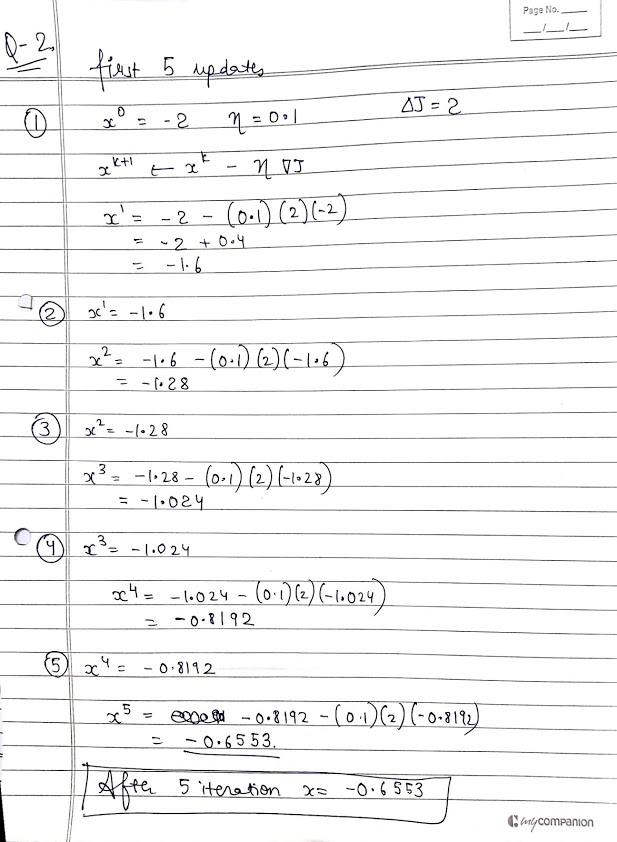 Page No.
_/_/_
Q-2.
first 5 updates
① x⁰ = -2 η = 0.1 ΔJ = 2
xᵏ⁺¹ ← xᵏ - η ∇J
x¹ = -2 - (0.1) (2) (-2)
= -2 + 0.4
= -1.6
② x¹ = -1.6
x² = -1.6 - (0.1) (2) (-1.6)
= -1.28
③ x² = -1.28
x³ = -1.28 - (0.1) (2) (-1.28)
= -1.024
④ x³ = -1.024
x⁴ = -1.024 - (0.1) (2) (-1.024)
= -0.8192
⑤ x⁴ = -0.8192
x⁵ = -0.8192 - (0.1) (2) (-0.8192)
= -0.6553.
After 5 iteration x = -0.6553
mycompanion